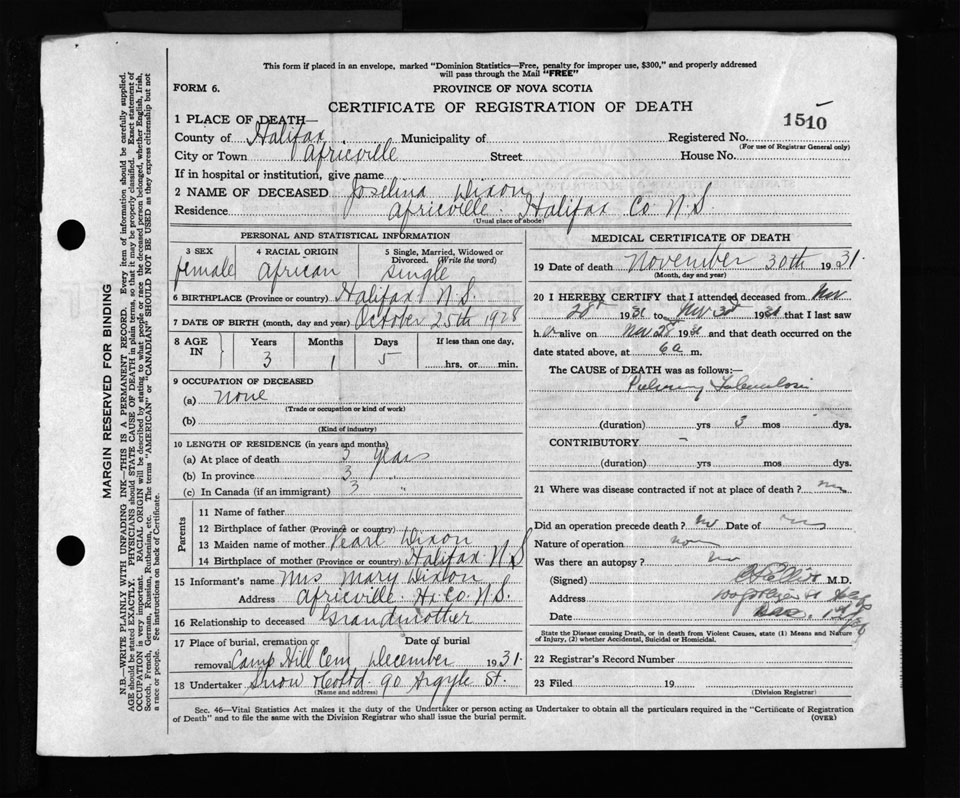 This form if placed in an envelope, marked "Dominion Statistics—Free, penalty for improper use, $300," and properly addressed
will pass through the Mail "FREE"
FORM 6.
PROVINCE OF NOVA SCOTIA
CERTIFICATE OF REGISTRATION OF DEATH
1510
1 PLACE OF DEATH—
County of Halifax Municipality of Registered No.
(For use of Registrar General only)
City or Town Africville Street House No.
If in hospital or institution, give name
2 NAME OF DECEASED Joselina Dixon
Residence Africville Halifax Co N.S.
(Usual place of abode)
PERSONAL AND STATISTICAL INFORMATION
3 SEX
female
4 RACIAL ORIGIN
African
5 Single, Married, Widowed or
Divorced. (Write the word)
single
6 BIRTHPLACE (Province or country) Halifax N.S.
7 DATE OF BIRTH (month, day and year) October 25th 1928
8 AGE IN
Years Months Days If less than one day,
3 1 5 hrs. or min.
9 OCCUPATION OF DECEASED
(a) none
(Trade or occupation or kind of work)
(b)
(Kind of industry)
10 LENGTH OF RESIDENCE (in years and months)
(a) At place of death 3 years
(b) In province 3 "
(c) In Canada (if an immigrant) 3 "
Parents
11 Name of father
12 Birthplace of father (Province or country)
13 Maiden name of mother Pearl Dixon
14 Birthplace of mother (Province or country) Halifax N.S
15 Informant's name Mrs Mary Dixon
Address Africville Hx Co. N.S.
16 Relationship to deceased Grandmother
17 Place of burial, cremation or Date of burial
removal Camp Hill Cem December 1931.
18 Undertaker Snow & Co Ltd. 90 Argyle St.
(Name and address)
MEDICAL CERTIFICATE OF DEATH
19 Date of death November 30th 1931.
(Month, day and year)
20 I HEREBY CERTIFY that I attended deceased from Nov
28 193 to Nov 30 193 that I last saw
h alive on Nov 28 193 and that death occurred on
date stated above, at 6 a m.
The CAUSE of DEATH was as follows:—
Pulmonary Tuberculosis
(duration) yrs 3 mos dys.
CONTRIBUTORY -
(duration) yrs mos dys.
21 Where was disease contracted if not at place of death?
Did an operation precede death? no Date of
Nature of operation
Was there an autopsy? no
(Signed) M.D.
Address
Date Dec.
State the Disease causing Death, or in death from Violent Causes, state (1) Means and Nature
of Injury, (2) whether Accidental, Suicidal or Homicidal.
22 Registrar's Record Number
23 Filed 19
(Division Registrar)
Sec. 46—Vital Statistics Act makes it the duty of the Undertaker or person acting as Undertaker to obtain all the particulars required in the "Certificate of Registration
of Death" and to file the same with the Division Registrar who shall issue the burial permit.
(OVER)
MARGIN RESERVED FOR BINDING
N.B.—WRITE PLAINLY WITH UNFADING INK—THIS IS A PERMANENT RECORD. Every item of information should be carefully supplied.
AGE should be stated EXACTLY. PHYSICIANS should STATE CAUSE OF DEATH in plain terms, so that it may be properly classified. Exact statement of
OCCUPATION is very important. RACIAL ORIGIN will be described by stating to what people or race the deceased person belonged, whether English, Irish,
Scotch, French, German, Russian, Ruthenian, etc. The terms "AMERICAN" or "CANADIAN" SHOULD NOT BE USED as they express citizenship but not
a race or people. See instructions on back of Certificate.